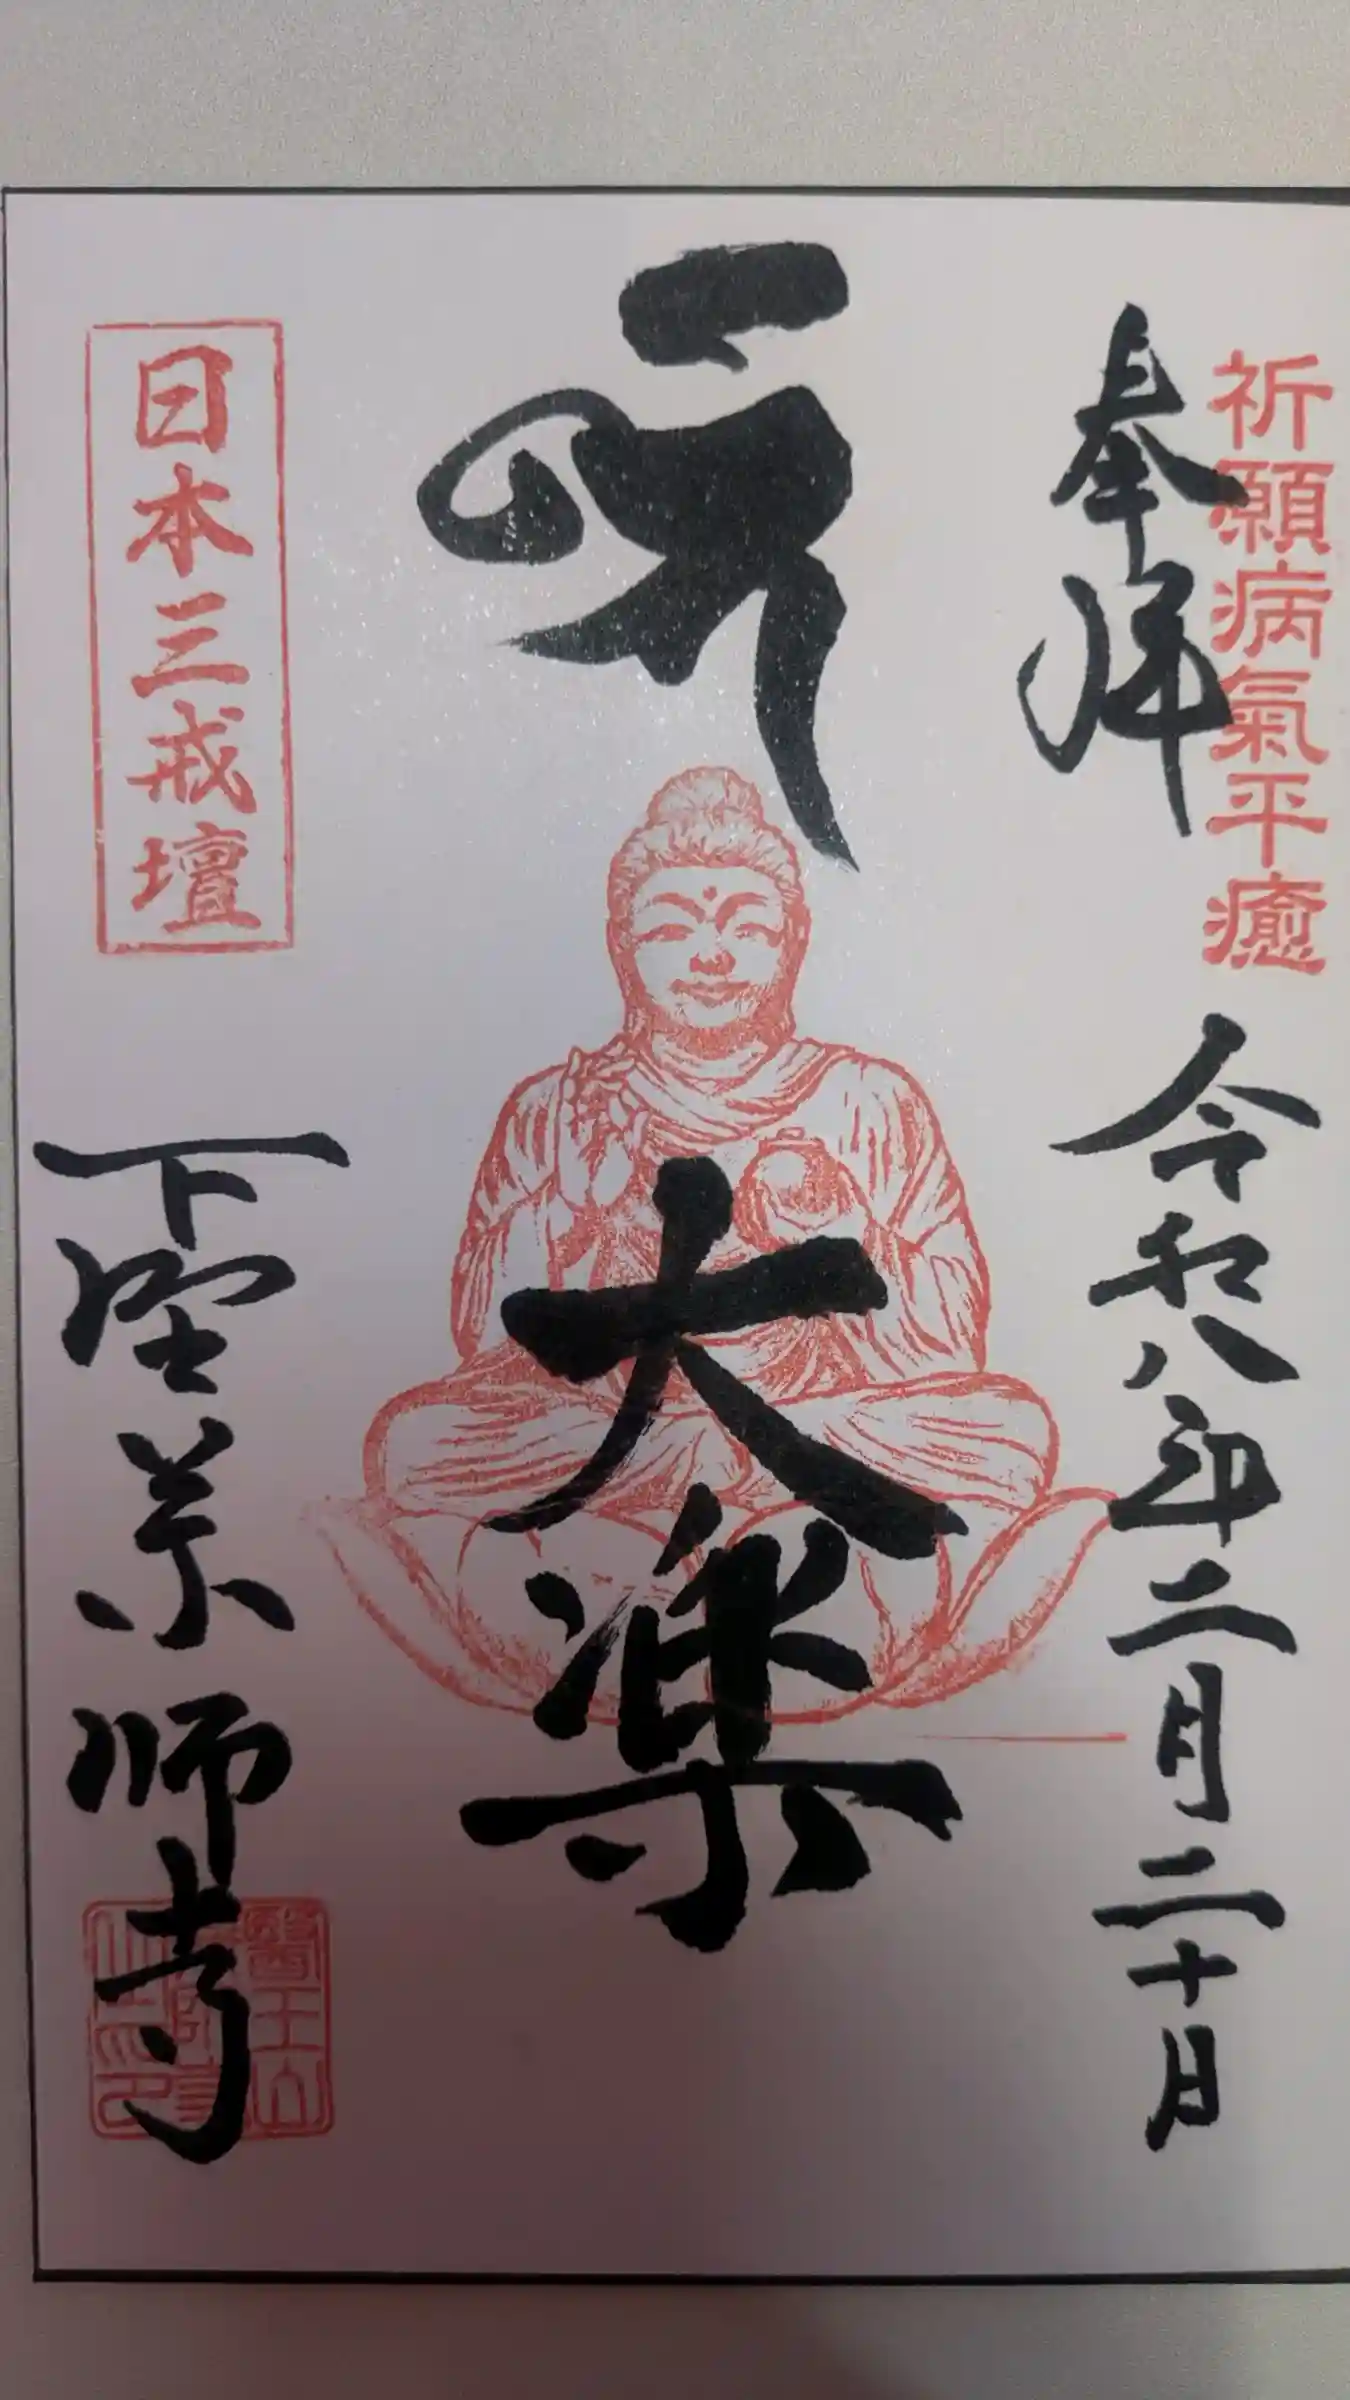 祈願病氣平癒
奉拝
令和八年二月二十日
大楽
日本三戒壇
下野薬師寺